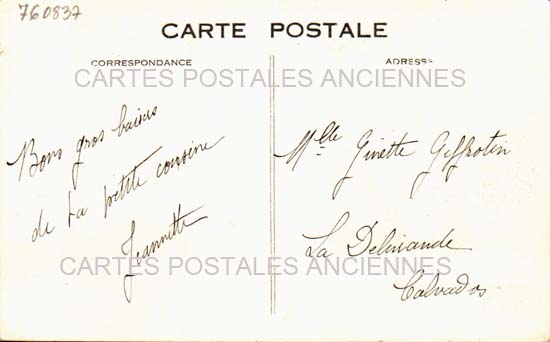 760837
CARTE POSTALE
CORRESPONDANCE
ADRESSE
CARTES POSTALES ANCIENNES
Bons gros baisers
de ta petite cousine
Jeannette
Mlle Ginette Geffrotin
La Délivrande
Calvados
CARTES POSTALES ANCIENNES